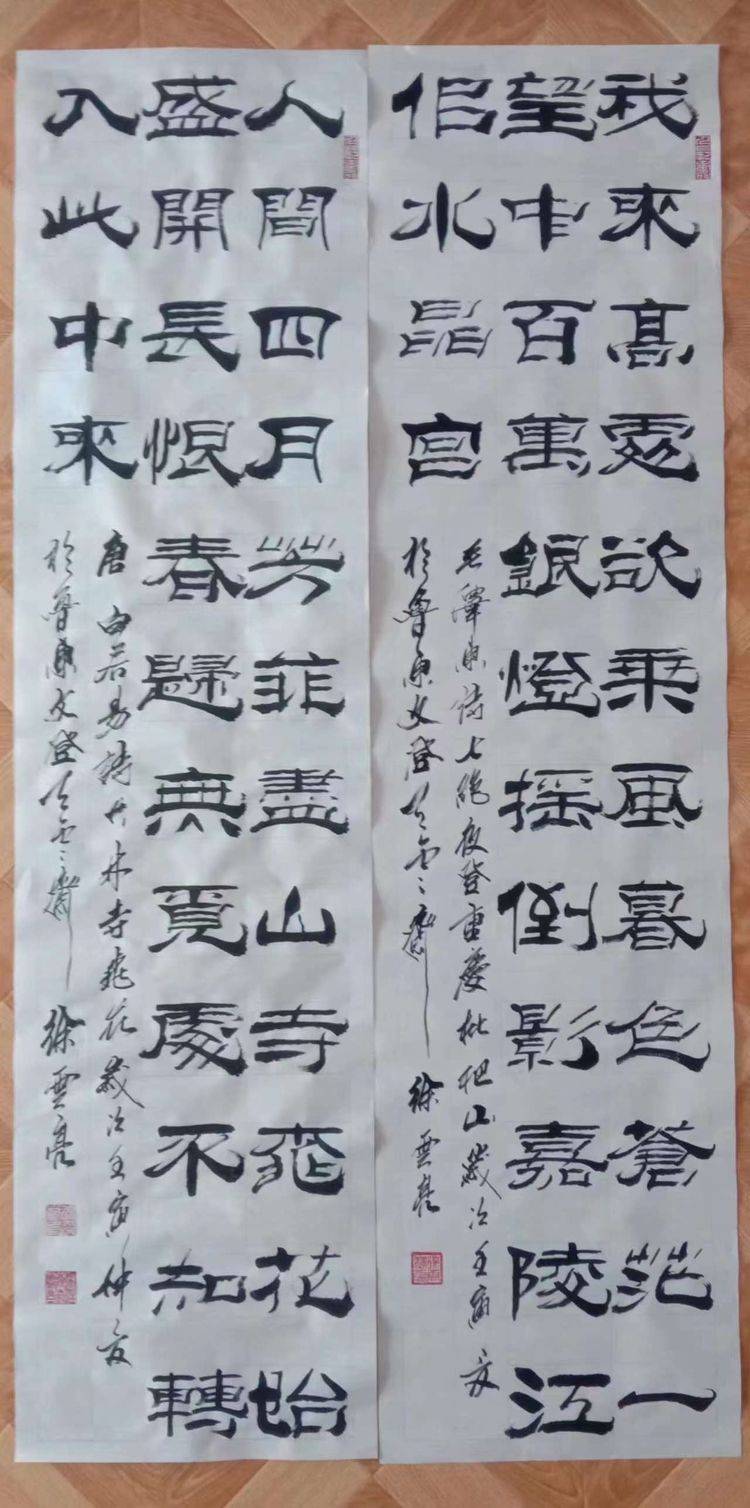 我來高處欲乘風暮色蒼茫一
望中百萬銀燈摇倒影嘉陵江
佀水晶宫
毛澤東詩七絶夜登重慶枇杷山歲次壬寅夏
於魯東文登齋徐雲亮
人間四月芳菲盡山寺桃花始
盛開長恨春歸無覓處不知轉
入此中來
唐白居易詩大林寺桃花歲次壬寅仲夏
於魯東文登齋徐雲亮